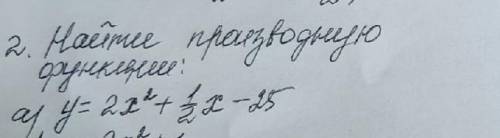 2. Найти производную
функции:
а) y = 2x² + 1/2 x - 25